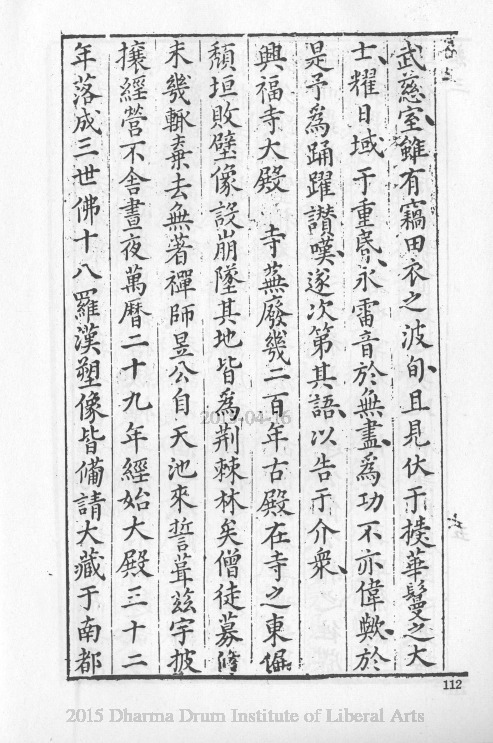 武慈室雖有竊田衣之波旬且見伏于㨗華鬘之大
士耀日域于重昏永雷音於無盡為功不亦偉歟於
是予為踊躍讃嘆遂次第其語以告于介衆
興福寺大殿 寺蕪廢幾二百年古殿在寺之東偏
頹垣敗壁像設崩墜其地皆為荆棘林矣僧徒募修
未幾輒棄去無著禪師昱公自天池來誓葺兹宇披
攘經營不舍晝夜萬曆二十九年經始大殿三十二
年落成三世佛十八羅漢塑像皆備請大藏于南都
112
2015 Dharma Drum Institute of Liberal Arts